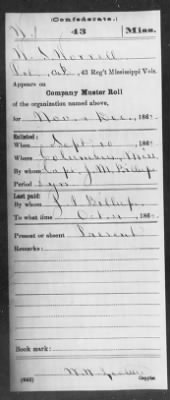 (Confederate.)
W | 43 | Miss.
W. S. Worrell
Pvt, Co. , 43 Reg't Mississippi Vols.
Appears on
Company Muster Roll
of the organization named above,
for Nov. & Dec., 186 .
Enlisted:
When Sept. 10, 186 .
Where Columbus, Miss
By whom Capt. J. M. Billups
Period 1 yr
Last paid:
By whom Billups
To what time Oct. , 186 .
Present or absent Present
Remarks:
Book mark:
(642)
Copyist.